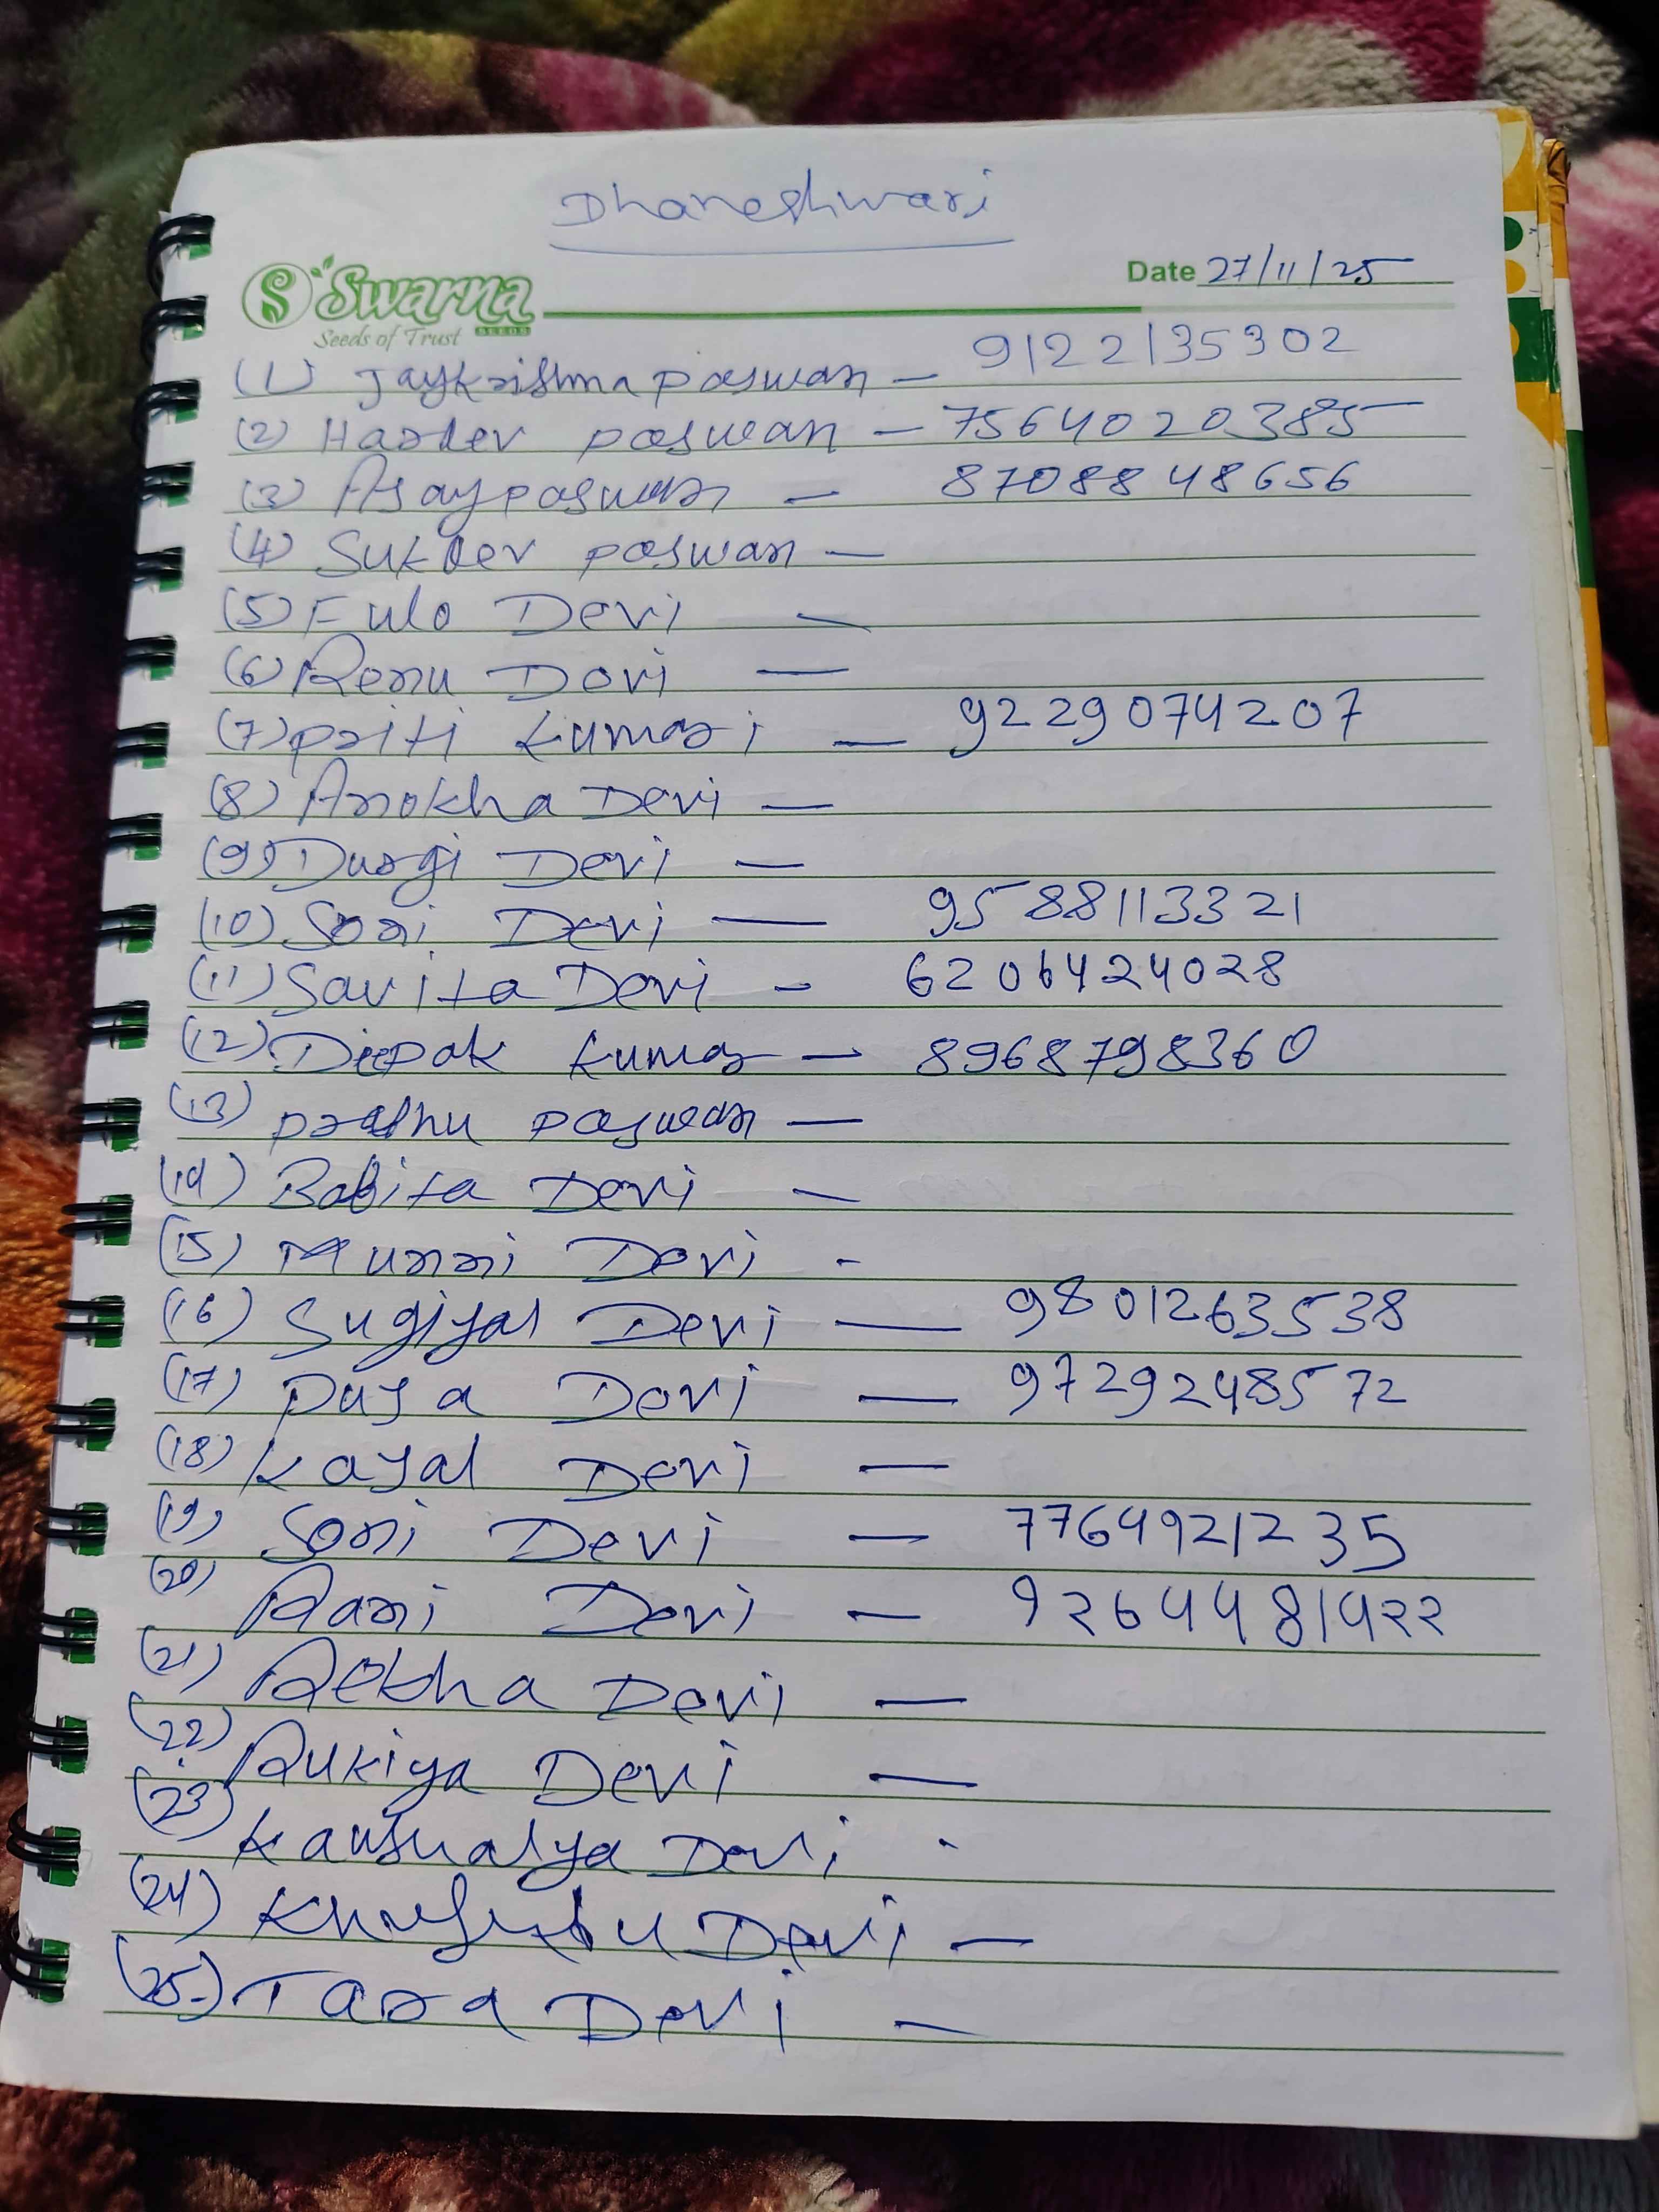 Dhaneshwari
Swarna
SEEDS
Seeds of Trust
Date 27/11/25
(1) Jaykrishna paswan - 9122135302
(2) Hardev paswan - 7564020385
(3) Ajay paswan - 8708848656
(4) Sukdev paswan -
(5) Fulo Devi -
(6) Renu Devi -
(7) Priti Kumari - 9229074207
(8) Anokha Devi -
(9) Durgi Devi -
(10) Soni Devi - 9588113321
(11) Savita Devi - 6206424028
(12) Deepak Kumar - 8968798360
(13) paswan -
(14) Babita Devi -
(15) Munni Devi -
(16) Sugiya Devi - 9801263538
(17) Puja Devi - 9729248572
(18) Kajal Devi -
(19) Soni Devi - 7764921235
(20) Rani Devi - 9264481422
(21) Rekha Devi -
(22) Rukiya Devi -
(23) Kaushalya Devi -
(24) Khushubu Devi -
(25) Tara Devi -